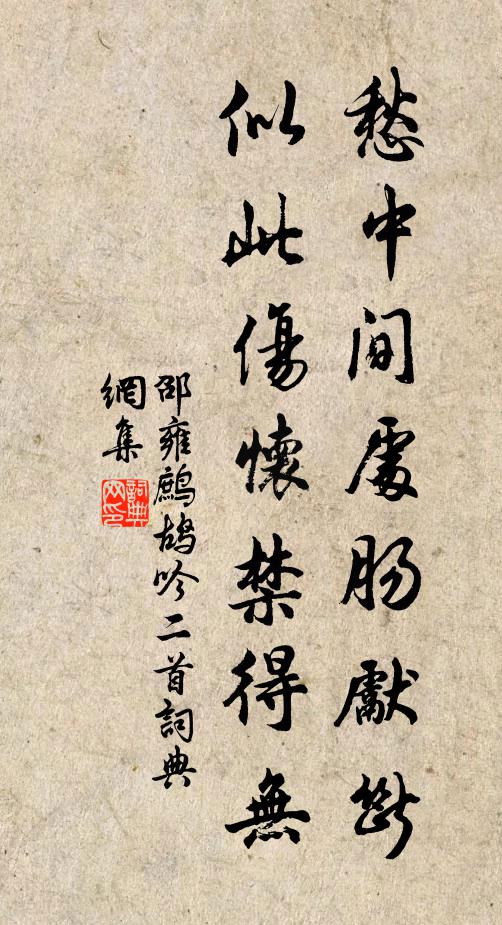 愁中聞處腸獻斷
似此傷懷禁得無
邵雍鷓鴣吟二首詞典
網集
詞典
网印